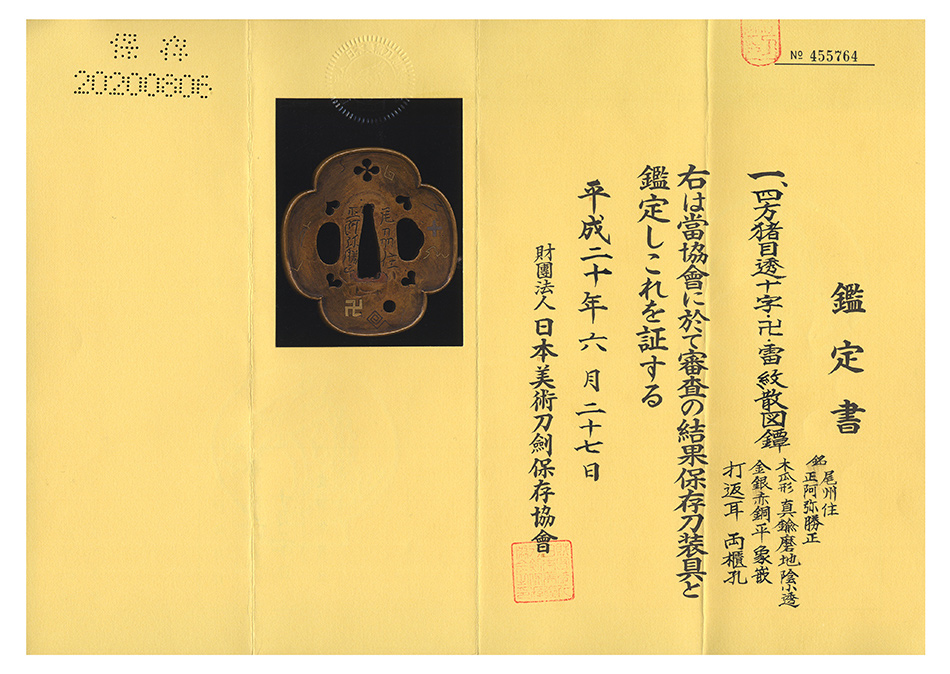 保存
20200806
№ 455764
鑑定書
一、四方猪目透十字・卍・雷紋散図鐔
銘 尾州住
正阿弥勝正
木瓜形 真鍮磨地 陰小透
金銀赤銅平象嵌
打返耳 両櫃孔
右は當協會に於て審査の結果保存刀装具と
鑑定しこれを証する
平成二十年六月二十七日
財團法人 日本美術刀劍保存協會
卍